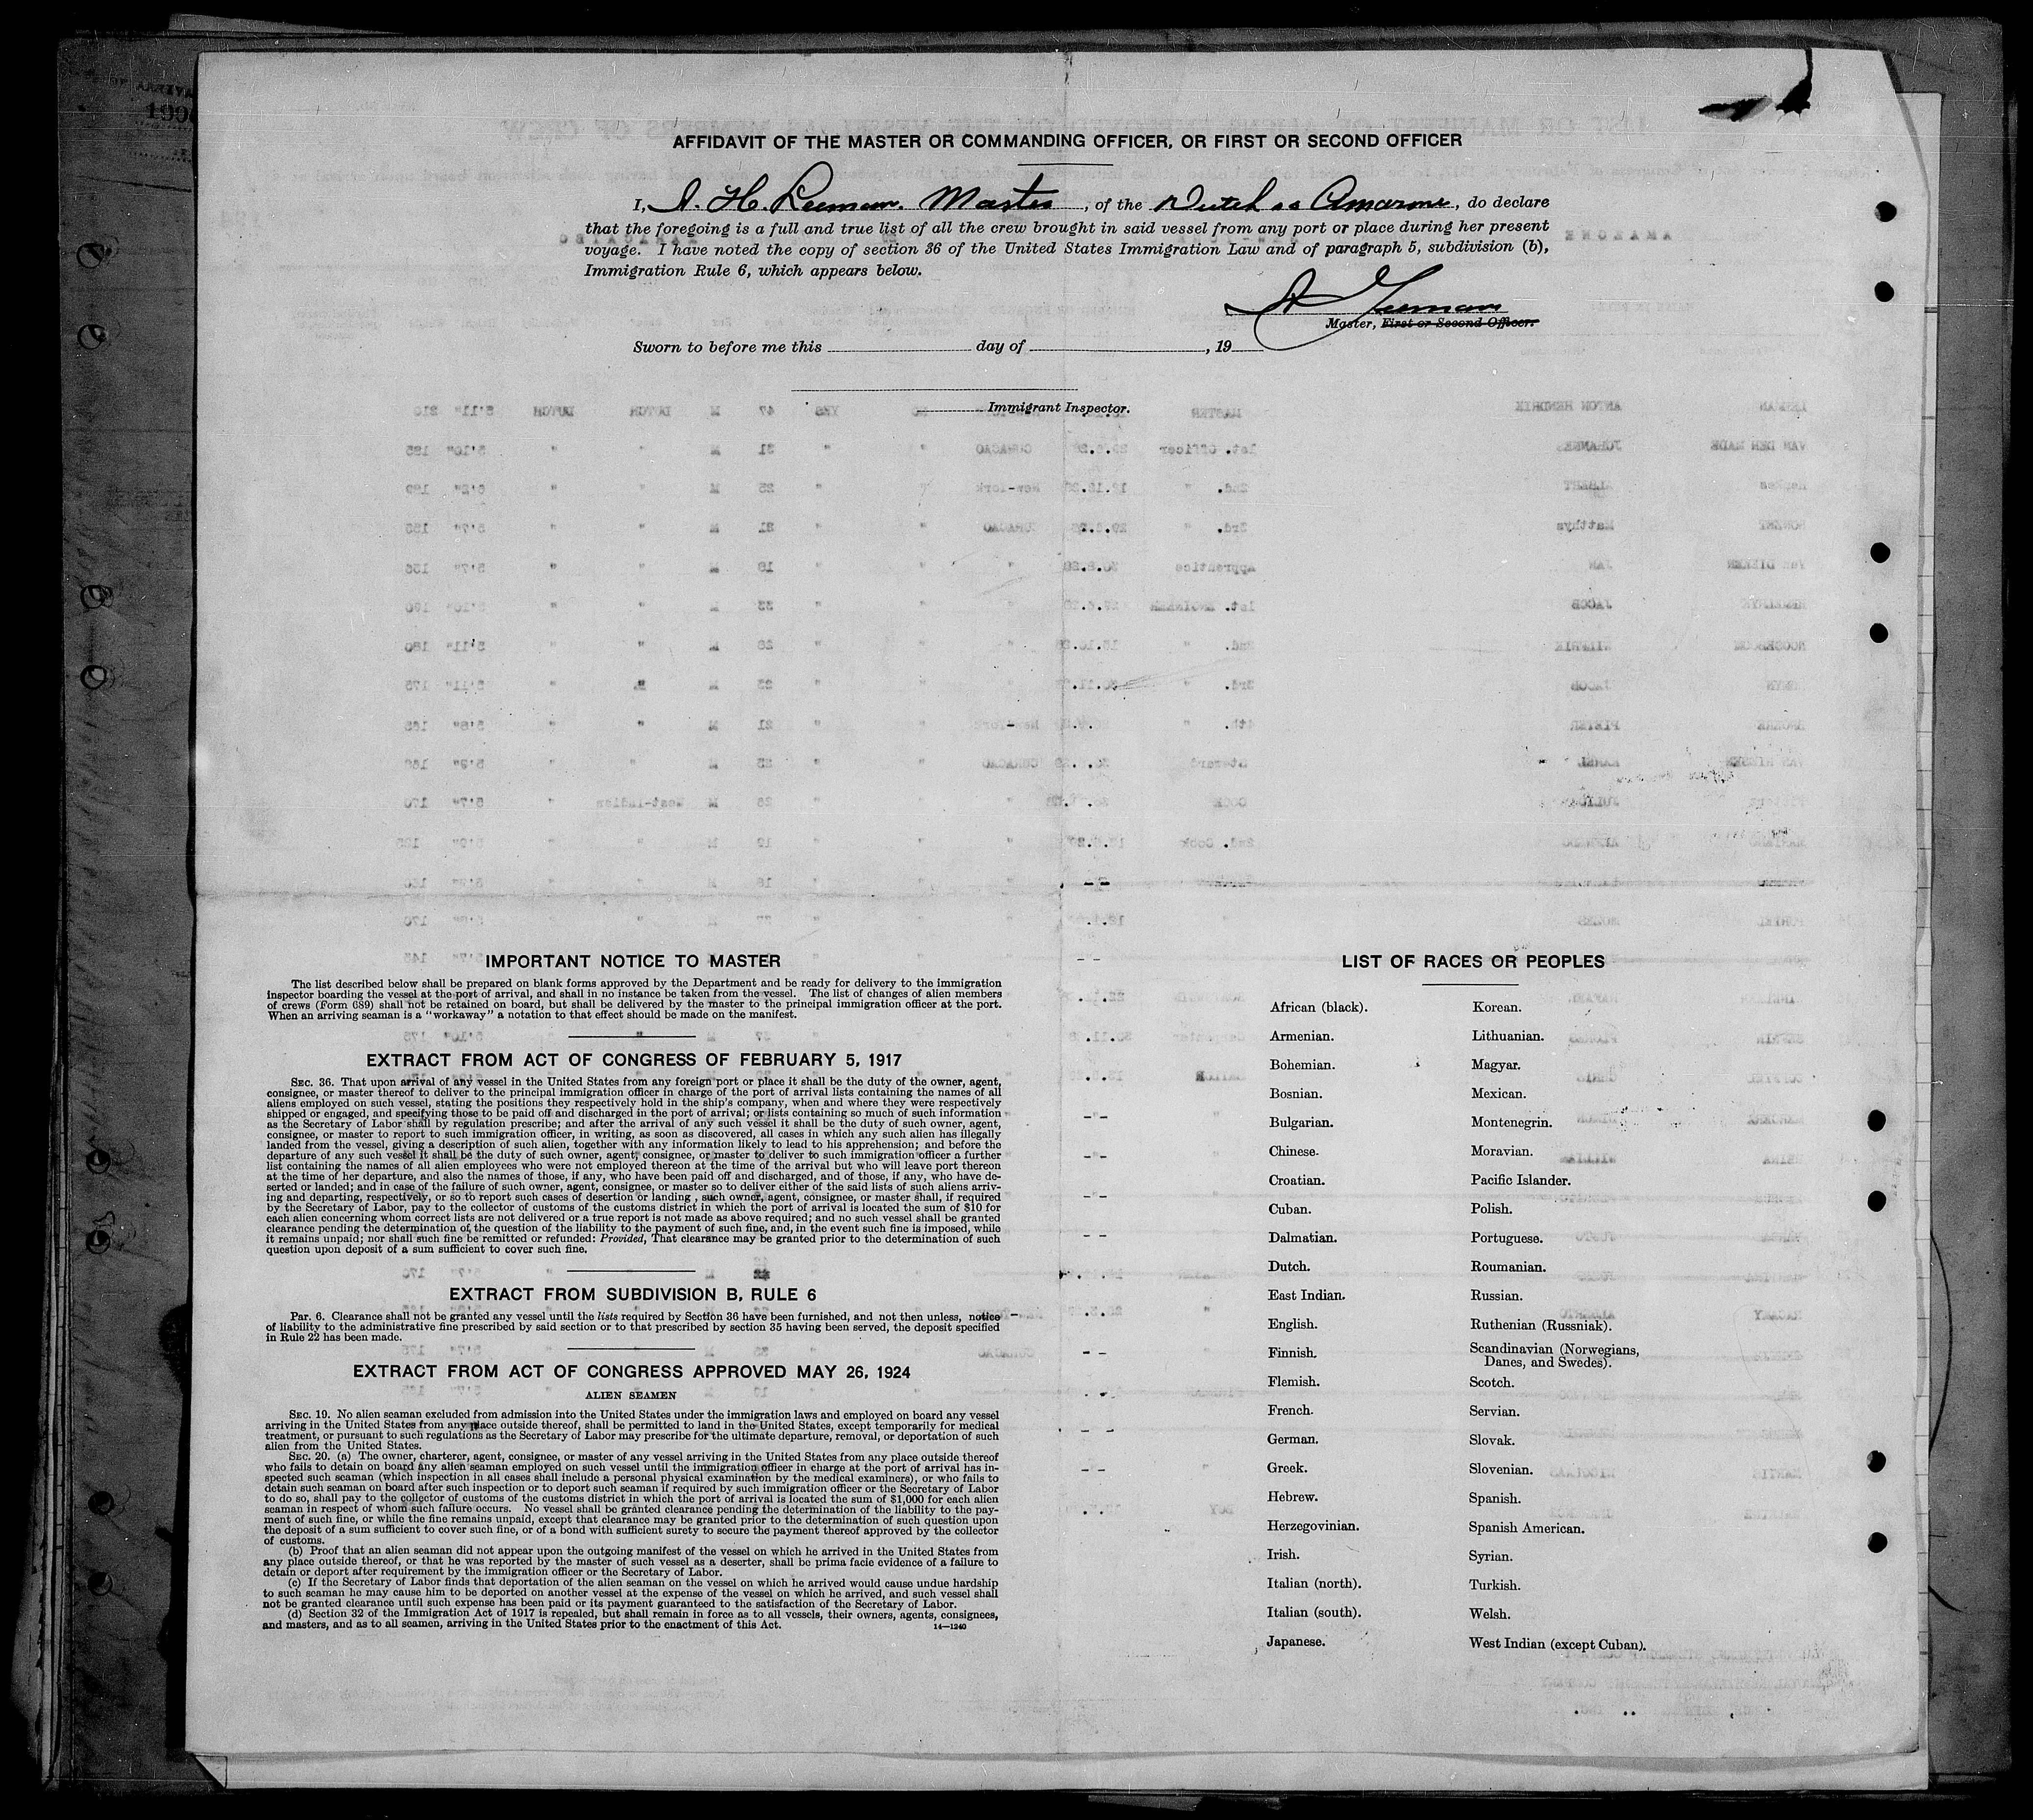 AFFIDAVIT OF THE MASTER OR COMMANDING OFFICER, OR FIRST OR SECOND OFFICER
I, A. H. Leeman. Master, of the Dutch ss Amazone, do declare
that the foregoing is a full and true list of all the crew brought in said vessel from any port or place during her present
voyage. I have noted the copy of section 36 of the United States Immigration Law and of paragraph 5, subdivision (b),
Immigration Rule 6, which appears below.
A Leeman
Master, First or Second Officer.
Sworn to before me this day of , 19
Immigrant Inspector.
IMPORTANT NOTICE TO MASTER
The list described below shall be prepared on blank forms approved by the Department and be ready for delivery to the immigration
inspector boarding the vessel at the port of arrival, and shall in no instance be taken from the vessel. The list of changes of alien members
of crews (Form 689) shall not be retained on board, but shall be delivered by the master to the principal immigration officer at the port.
When an arriving seaman is a "workaway" a notation to that effect should be made on the manifest.
EXTRACT FROM ACT OF CONGRESS OF FEBRUARY 5, 1917
SEC. 36. That upon arrival of any vessel in the United States from any foreign port or place it shall be the duty of the owner, agent,
consignee, or master thereof to deliver to the principal immigration officer in charge of the port of arrival lists containing the names of all
aliens employed on such vessel, stating the positions they respectively hold in the ship's company, when and where they were respectively
shipped or engaged, and specifying those to be paid off and discharged in the port of arrival; or lists containing so much of such information
as the Secretary of Labor shall by regulation prescribe; and after the arrival of any such vessel it shall be the duty of such owner, agent,
consignee, or master to report to such immigration officer, in writing, as soon as discovered, all cases in which any such alien has illegally
landed from the vessel, giving a description of such alien, together with any information likely to lead to his apprehension; and before the
departure of any such vessel it shall be the duty of such owner, agent, consignee, or master to deliver to such immigration officer a further
list containing the names of all alien employees who were not employed thereon at the time of the arrival but who will leave port thereon
at the time of her departure, and also the names of those, if any, who have been paid off and discharged, and of those, if any, who have de-
serted or landed; and in case of the failure of such owner, agent, consignee, or master so to deliver either of the said lists of such aliens arriv-
ing and departing, respectively, or so to report such cases of desertion or landing , such owner, agent, consignee, or master shall, if required
by the Secretary of Labor, pay to the collector of customs of the customs district in which the port of arrival is located the sum of $10 for
each alien concerning whom correct lists are not delivered or a true report is not made as above required; and no such vessel shall be granted
clearance pending the determination of the question of the liability to the payment of such fine, and, in the event such fine is imposed, while
it remains unpaid; nor shall such fine be remitted or refunded: Provided, That clearance may be granted prior to the determination of such
question upon deposit of a sum sufficient to cover such fine.
EXTRACT FROM SUBDIVISION B, RULE 6
PAR. 6. Clearance shall not be granted any vessel until the lists required by Section 36 have been furnished, and not then unless, notice
of liability to the administrative fine prescribed by said section or to that prescribed by section 35 having been served, the deposit specified
in Rule 22 has been made.
EXTRACT FROM ACT OF CONGRESS APPROVED MAY 26, 1924
ALIEN SEAMEN
SEC. 19. No alien seaman excluded from admission into the United States under the immigration laws and employed on board any vessel
arriving in the United States from any place outside thereof, shall be permitted to land in the United States, except temporarily for medical
treatment, or pursuant to such regulations as the Secretary of Labor may prescribe for the ultimate departure, removal, or deportation of such
alien from the United States.
SEC. 20. (a) The owner, charterer, agent, consignee, or master of any vessel arriving in the United States from any place outside thereof
who fails to detain on board any alien seaman employed on such vessel until the immigration officer in charge at the port of arrival has in-
spected such seaman (which inspection in all cases shall include a personal physical examination by the medical examiners), or who fails to
detain such seaman on board after such inspection or to deport such seaman if required by such immigration officer or the Secretary of Labor
to do so, shall pay to the collector of customs of the customs district in which the port of arrival is located the sum of $1,000 for each alien
seaman in respect of whom such failure occurs. No vessel shall be granted clearance pending the determination of the liability to the pay-
ment of such fine, or while the fine remains unpaid, except that clearance may be granted prior to the determination of such question upon
the deposit of a sum sufficient to cover such fine, or of a bond with sufficient surety to secure the payment thereof approved by the collector
of customs.
(b) Proof that an alien seaman did not appear upon the outgoing manifest of the vessel on which he arrived in the United States from
any place outside thereof, or that he was reported by the master of such vessel as a deserter, shall be prima facie evidence of a failure to
detain or deport after requirement by the immigration officer or the Secretary of Labor.
(c) If the Secretary of Labor finds that deportation of the alien seaman on the vessel on which he arrived would cause undue hardship
to such seaman he may cause him to be deported on another vessel at the expense of the vessel on which he arrived, and such vessel shall
not be granted clearance until such expense has been paid or its payment guaranteed to the satisfaction of the Secretary of Labor.
(d) Section 32 of the Immigration Act of 1917 is repealed, but shall remain in force as to all vessels, their owners, agents, consignees,
and masters, and as to all seamen, arriving in the United States prior to the enactment of this Act.
14—1240
LIST OF RACES OR PEOPLES
African (black).
Armenian.
Bohemian.
Bosnian.
Bulgarian.
Chinese.
Croatian.
Cuban.
Dalmatian.
Dutch.
East Indian.
English.
Finnish.
Flemish.
French.
German.
Greek.
Hebrew.
Herzegovinian.
Irish.
Italian (north).
Italian (south).
Japanese.
Korean.
Lithuanian.
Magyar.
Mexican.
Montenegrin.
Moravian.
Pacific Islander.
Polish.
Portuguese.
Roumanian.
Russian.
Ruthenian (Russniak).
Scandinavian (Norwegians,
Danes, and Swedes).
Scotch.
Servian.
Slovak.
Slovenian.
Spanish.
Spanish American.
Syrian.
Turkish.
Welsh.
West Indian (except Cuban).